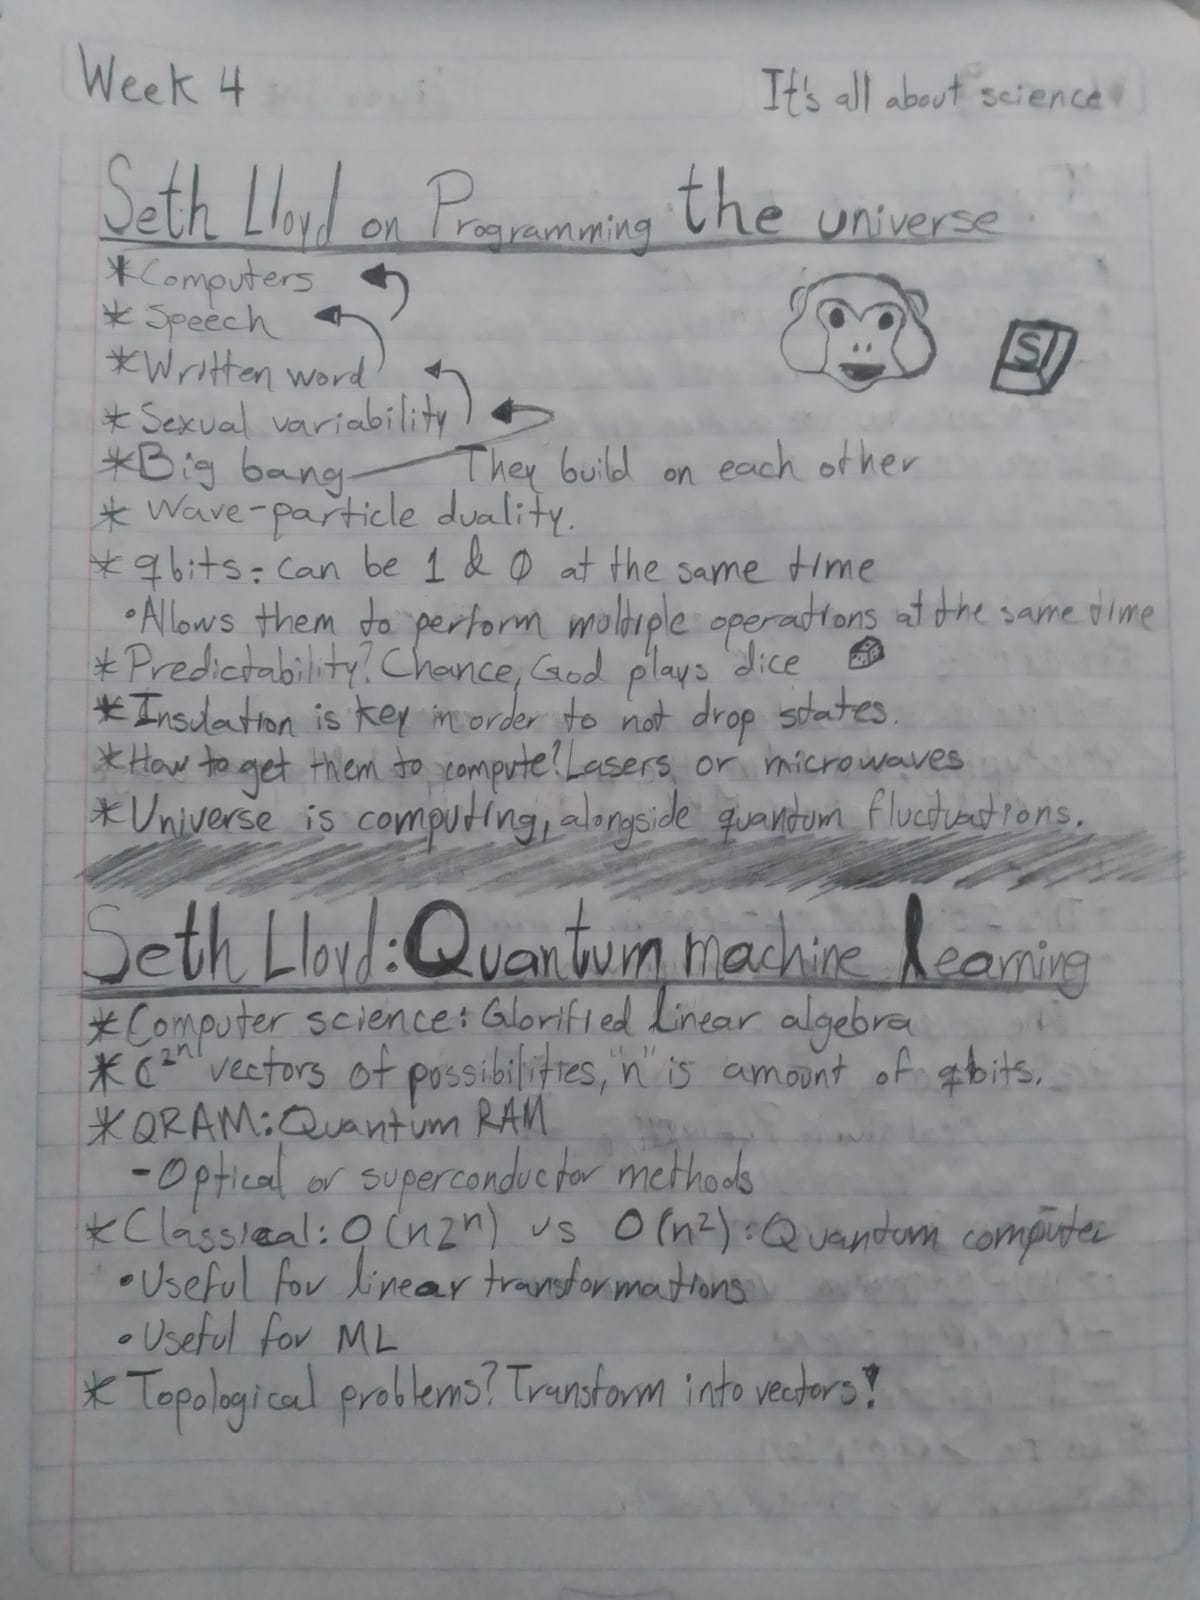 Week 4
It's all about science
Seth Lloyd on Programming the universe
* Computers
* Speech
* Written word
* Sexual variability
* Big bang They build on each other
* Wave-particle duality.
* qbits: can be 1 & 0 at the same time
• Allows them to perform multiple operations at the same time
* Predictability? Chance, God plays dice
* Insulation is key in order to not drop states.
* How to get them to compute? Lasers or microwaves
* Universe is computing, alongside quantum fluctuations.
S
Seth Lloyd: Quantum machine learning
* Computer science: Glorified linear algebra
* C^2^n vectors of possibilities, "n" is amount of qbits.
* QRAM: Quantum RAM
- Optical or superconductor methods
* Classical: O(n2^n) vs O(n^2): Quantum computer
• Useful for linear transformations
• Useful for ML
* Topological problems? Transform into vectors!